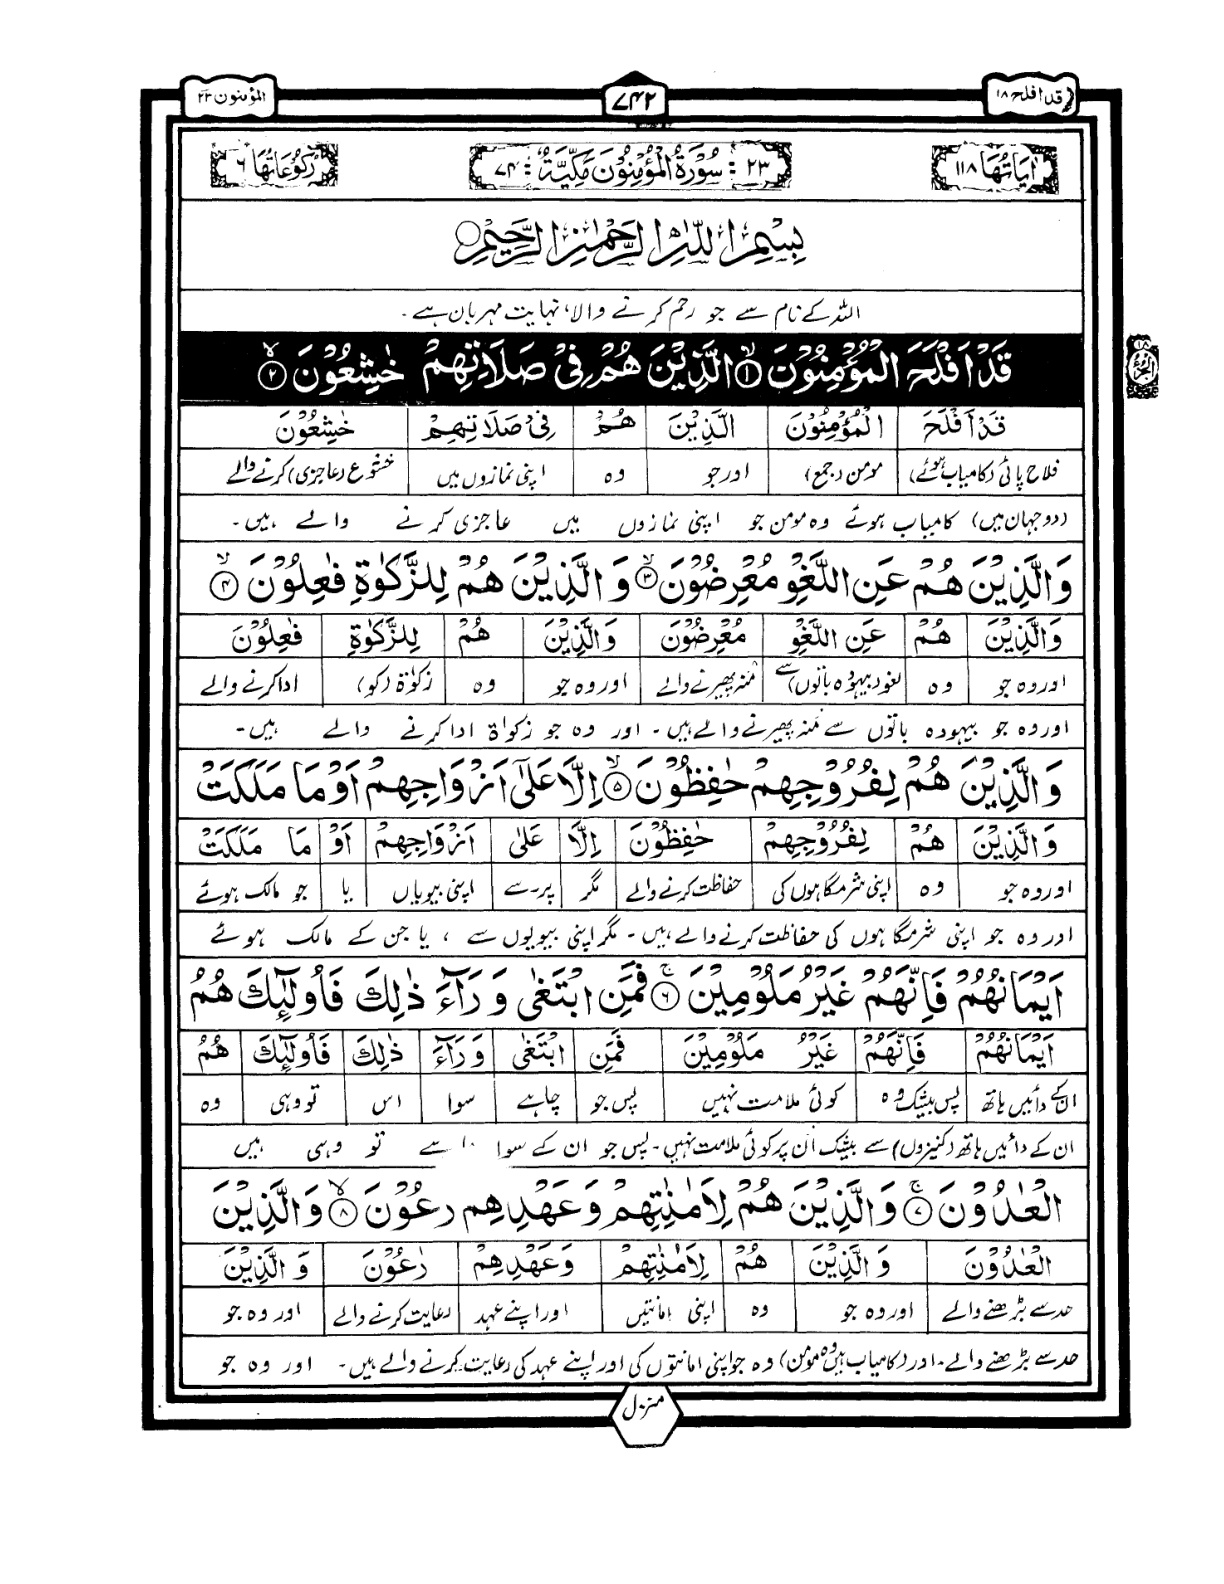 قد افلح ۱۸ ۷۴۲ المؤمنون ۲۳
اٰيَاتُهَا ۱۱۸ ۲۳: سُوْرَةُ الْمُؤْمِنُوْنَ مَكِّيَّةٌ: ۷۴ رُكُوْعَاتُهَا ۶
بِسْمِ اللّٰهِ الرَّحْمٰنِ الرَّحِيْمِ
اللہ کے نام سے جو رحم کرنے والا، نہایت مہربان ہے۔
قَدْ اَفْلَحَ الْمُؤْمِنُوْنَ ۱ الَّذِيْنَ هُمْ فِيْ صَلَاتِهِمْ خٰشِعُوْنَ ۲
قَدْ اَفْلَحَ الْمُؤْمِنُوْنَ الَّذِيْنَ هُمْ فِيْ صَلَاتِهِمْ خٰشِعُوْنَ
فلاح پائی (کامیاب ہوئے) مومن (جمع) اور جو وہ اپنی نمازوں میں خشوع (عاجزی) کرنے والے
(دو جہان میں) کامیاب ہوئے وہ مومن جو اپنی نمازوں میں عاجزی کرنے والے ہیں۔
وَالَّذِيْنَ هُمْ عَنِ اللَّغْوِ مُعْرِضُوْنَ ۳ وَالَّذِيْنَ هُمْ لِلزَّكٰوةِ فٰعِلُوْنَ ۴
وَالَّذِيْنَ هُمْ عَنِ اللَّغْوِ مُعْرِضُوْنَ وَالَّذِيْنَ هُمْ لِلزَّكٰوةِ فٰعِلُوْنَ
اور وہ جو وہ لغو (بیہودہ باتوں) سے منہ پھیرنے والے اور وہ جو وہ زکوٰۃ (کو) ادا کرنے والے
اور وہ جو بیہودہ باتوں سے منہ پھیرنے والے ہیں۔ اور وہ جو زکوٰۃ ادا کرنے والے ہیں۔
وَالَّذِيْنَ هُمْ لِفُرُوْجِهِمْ حٰفِظُوْنَ ۵ اِلَّا عَلٰٓى اَزْوَاجِهِمْ اَوْ مَا مَلَكَتْ
وَالَّذِيْنَ هُمْ لِفُرُوْجِهِمْ حٰفِظُوْنَ اِلَّا عَلٰى اَزْوَاجِهِمْ اَوْ مَا مَلَكَتْ
اور وہ جو وہ اپنی شرمگاہوں کی حفاظت کرنے والے مگر پر-سے اپنی بیویاں یا جو مالک ہوئے
اور وہ جو اپنی شرمگاہوں کی حفاظت کرنے والے ہیں۔ مگر اپنی بیویوں سے، یا جن کے مالک ہوئے
اَيْمَانُهُمْ فَاِنَّهُمْ غَيْرُ مَلُوْمِيْنَ ۶ فَمَنِ ابْتَغٰى وَرَآءَ ذٰلِكَ فَاُولٰٓئِكَ هُمُ
اَيْمَانُهُمْ فَاِنَّهُمْ غَيْرُ مَلُوْمِيْنَ فَمَنِ ابْتَغٰى وَرَآءَ ذٰلِكَ فَاُولٰٓئِكَ هُمُ
ان کے دائیں ہاتھ پس بیشک وہ کوئی ملامت نہیں پس جو چاہے سوا اس تو وہی وہ
ان کے دائیں ہاتھ (کنیزوں) سے بیشک ان پر کوئی ملامت نہیں۔ پس جو ان کے سوا تو وہی ہیں
الْعٰدُوْنَ ۷ وَالَّذِيْنَ هُمْ لِاَمٰنٰتِهِمْ وَعَهْدِهِمْ رٰعُوْنَ ۸ وَالَّذِيْنَ
الْعٰدُوْنَ وَالَّذِيْنَ هُمْ لِاَمٰنٰتِهِمْ وَعَهْدِهِمْ رٰعُوْنَ وَالَّذِيْنَ
حد سے بڑھنے والے اور وہ جو وہ اپنی امانتیں اور اپنے عہد رعایت کرنے والے اور وہ جو
حد سے بڑھنے والے۔ اور (کامیاب ہیں وہ مومن) وہ جو اپنی امانتوں کی اور اپنے عہد کی رعایت کرنے والے ہیں۔ اور وہ جو
منزل